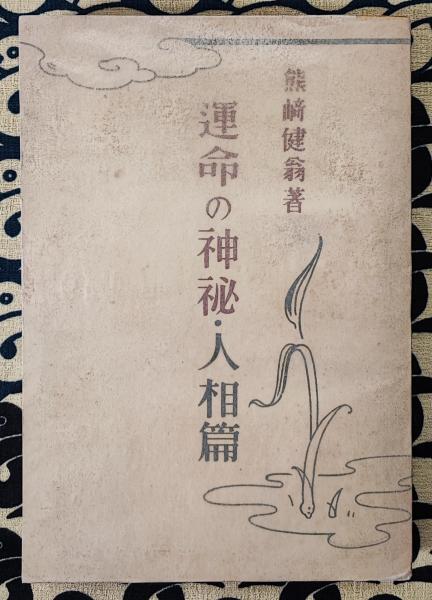 熊﨑健翁著
運命の神祕・人相篇